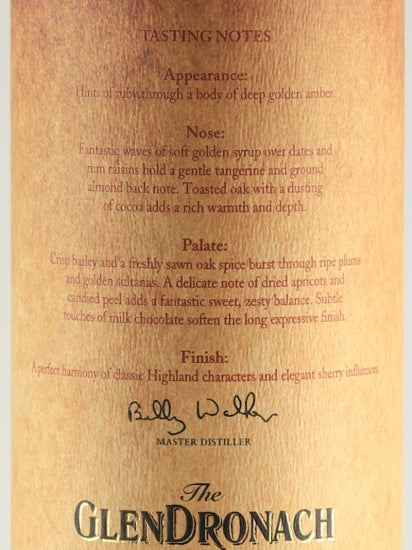 TASTING NOTES
Appearance:
Hints of ruby through a body of deep golden amber.
Nose:
Fantastic waves of soft golden syrup over dates and
rum raisins hold a gentle tangerine and ground
almond back note. Toasted oak with a dusting
of cocoa adds a rich warmth and depth.
Palate:
Crisp barley and a freshly sawn oak spice burst through ripe plums
and golden sultanas. A delicate note of dried apricots and
candied peel adds a fantastic sweet, zesty balance. Subtle
touches of milk chocolate soften the long expressive finish.
Finish:
A perfect harmony of classic Highland characters and elegant sherry influences.
Billy Walker
MASTER DISTILLER
The
GLENDRONACH